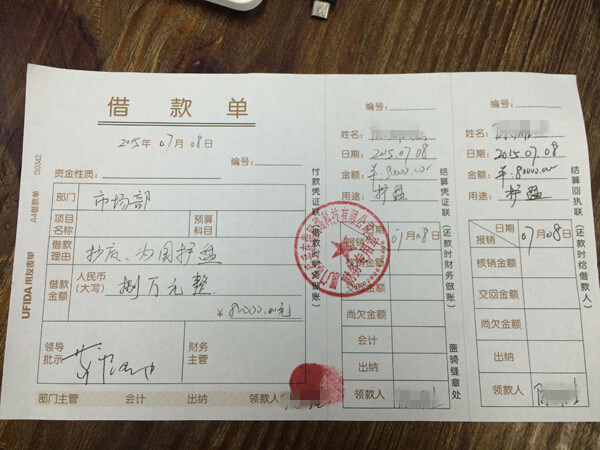 借款单
2015年07月08日
资金性质:
编号:
部门 市场部
项目名称
预算科目
借款理由 抄底、为国护盘
借款金额 人民币(大写) 捌万元整
¥80000.00元
领导批示
财务主管
部门主管 会计 出纳 领款人
A4借款单 S0342
UFIDA 用友表单
付款凭证联(借款时财务做账)
编号:
姓名:
日期: 2015.07.08
金额: 羊:80000.00
用途: 护盘
日期 07月08日
报销
核销金额
交回金额
尚欠金额
会计
出纳
领款人
结算凭证联(还款时财务做账)
盖骑缝章处
编号:
姓名:
日期: 2015.07.08
金额: 羊:80000.00
用途: 护盘
日期 07月08日
报销
核销金额
交回金额
尚欠金额
出纳
领款人
结算回执联(还款时给借款人)
科技有限公司
财务专用章